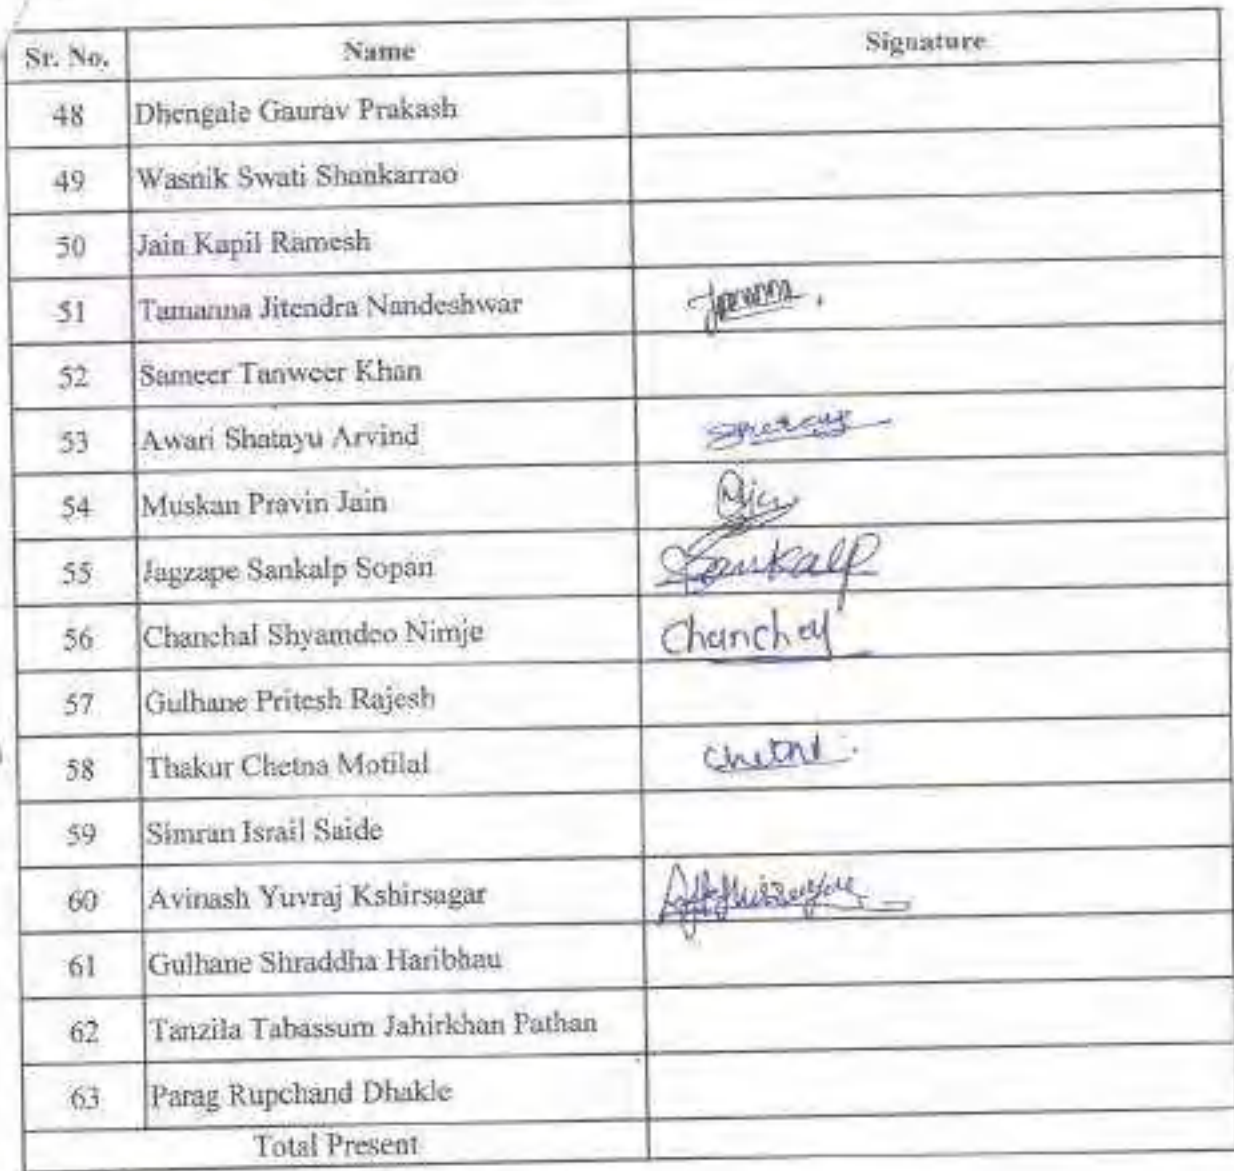 Sr. No. Name Signature
48 Dhengale Gaurav Prakash
49 Wasnik Swati Shankarrao
50 Jain Kapil Ramesh
51 Tamanna Jitendra Nandeshwar
52 Sameer Tanweer Khan
53 Awari Shatayu Arvind
54 Muskan Pravin Jain
55 Jagzape Sankalp Sopan Sankalp
56 Chanchal Shyamdeo Nimje Chanchal
57 Gulhane Pritesh Rajesh
58 Thakur Chetna Motilal Chetna
59 Simran Israil Saide
60 Avinash Yuvraj Kshirsagar
61 Gulhane Shraddha Haribhau
62 Tanzila Tabassum Jahirkhan Pathan
63 Parag Rupchand Dhakle
Total Present